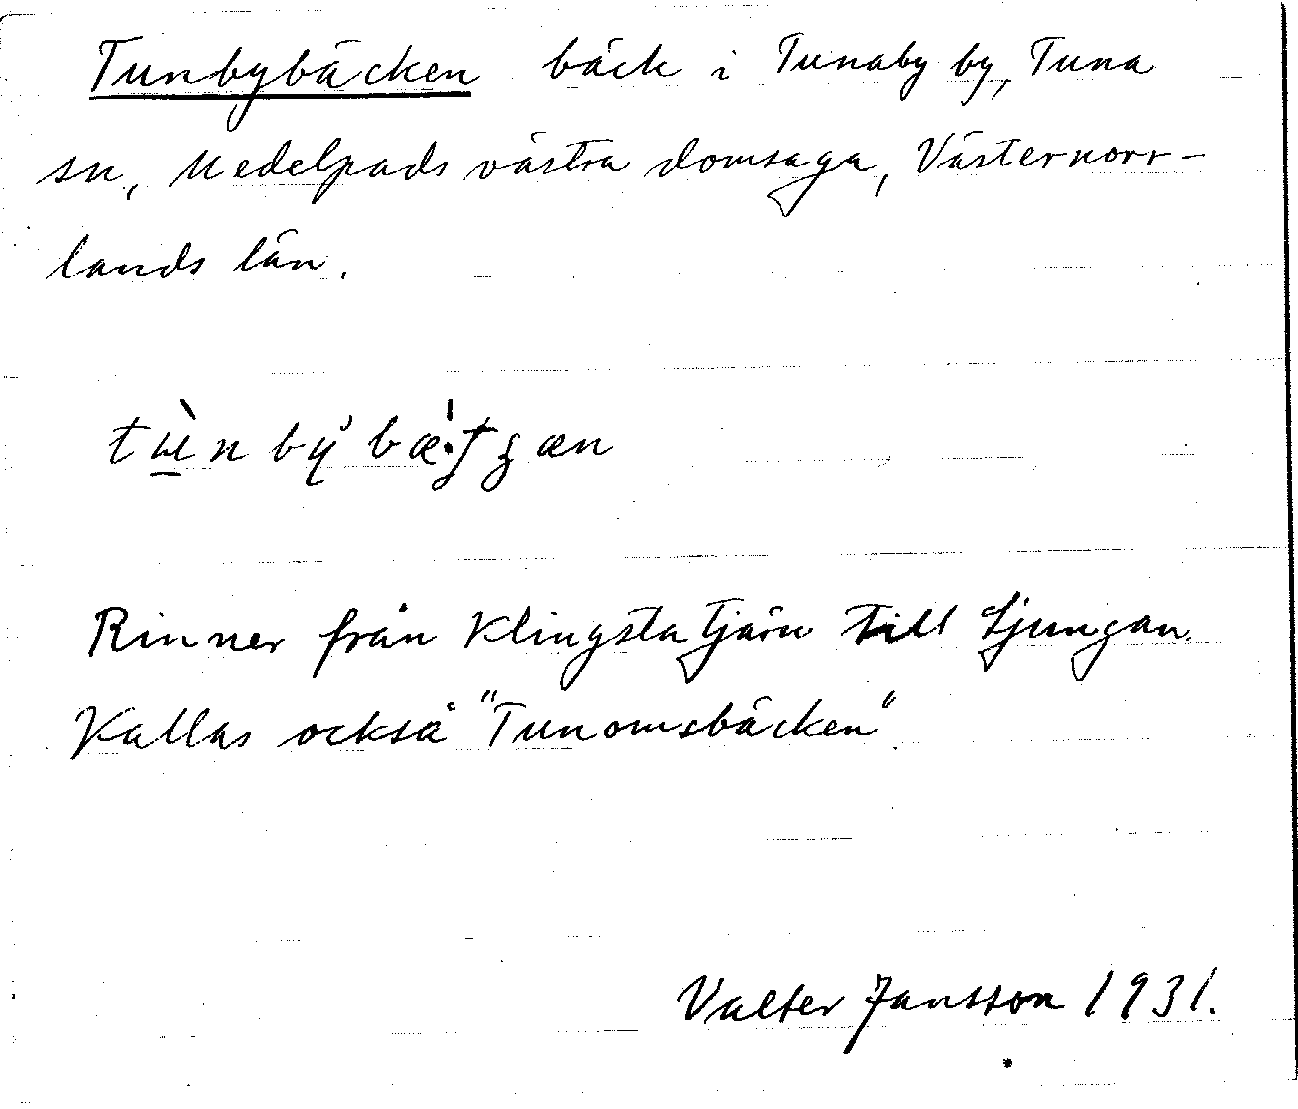 Tunbybäcken bäck i Tunaby by, Tuna
sn, Medelpads västra domsaga, Västernorr-
lands län.
Rinner från Klingsta tjärn till Ljungan.
Kallas också "Tunomsbäcken"
Valter Jansson 1931.